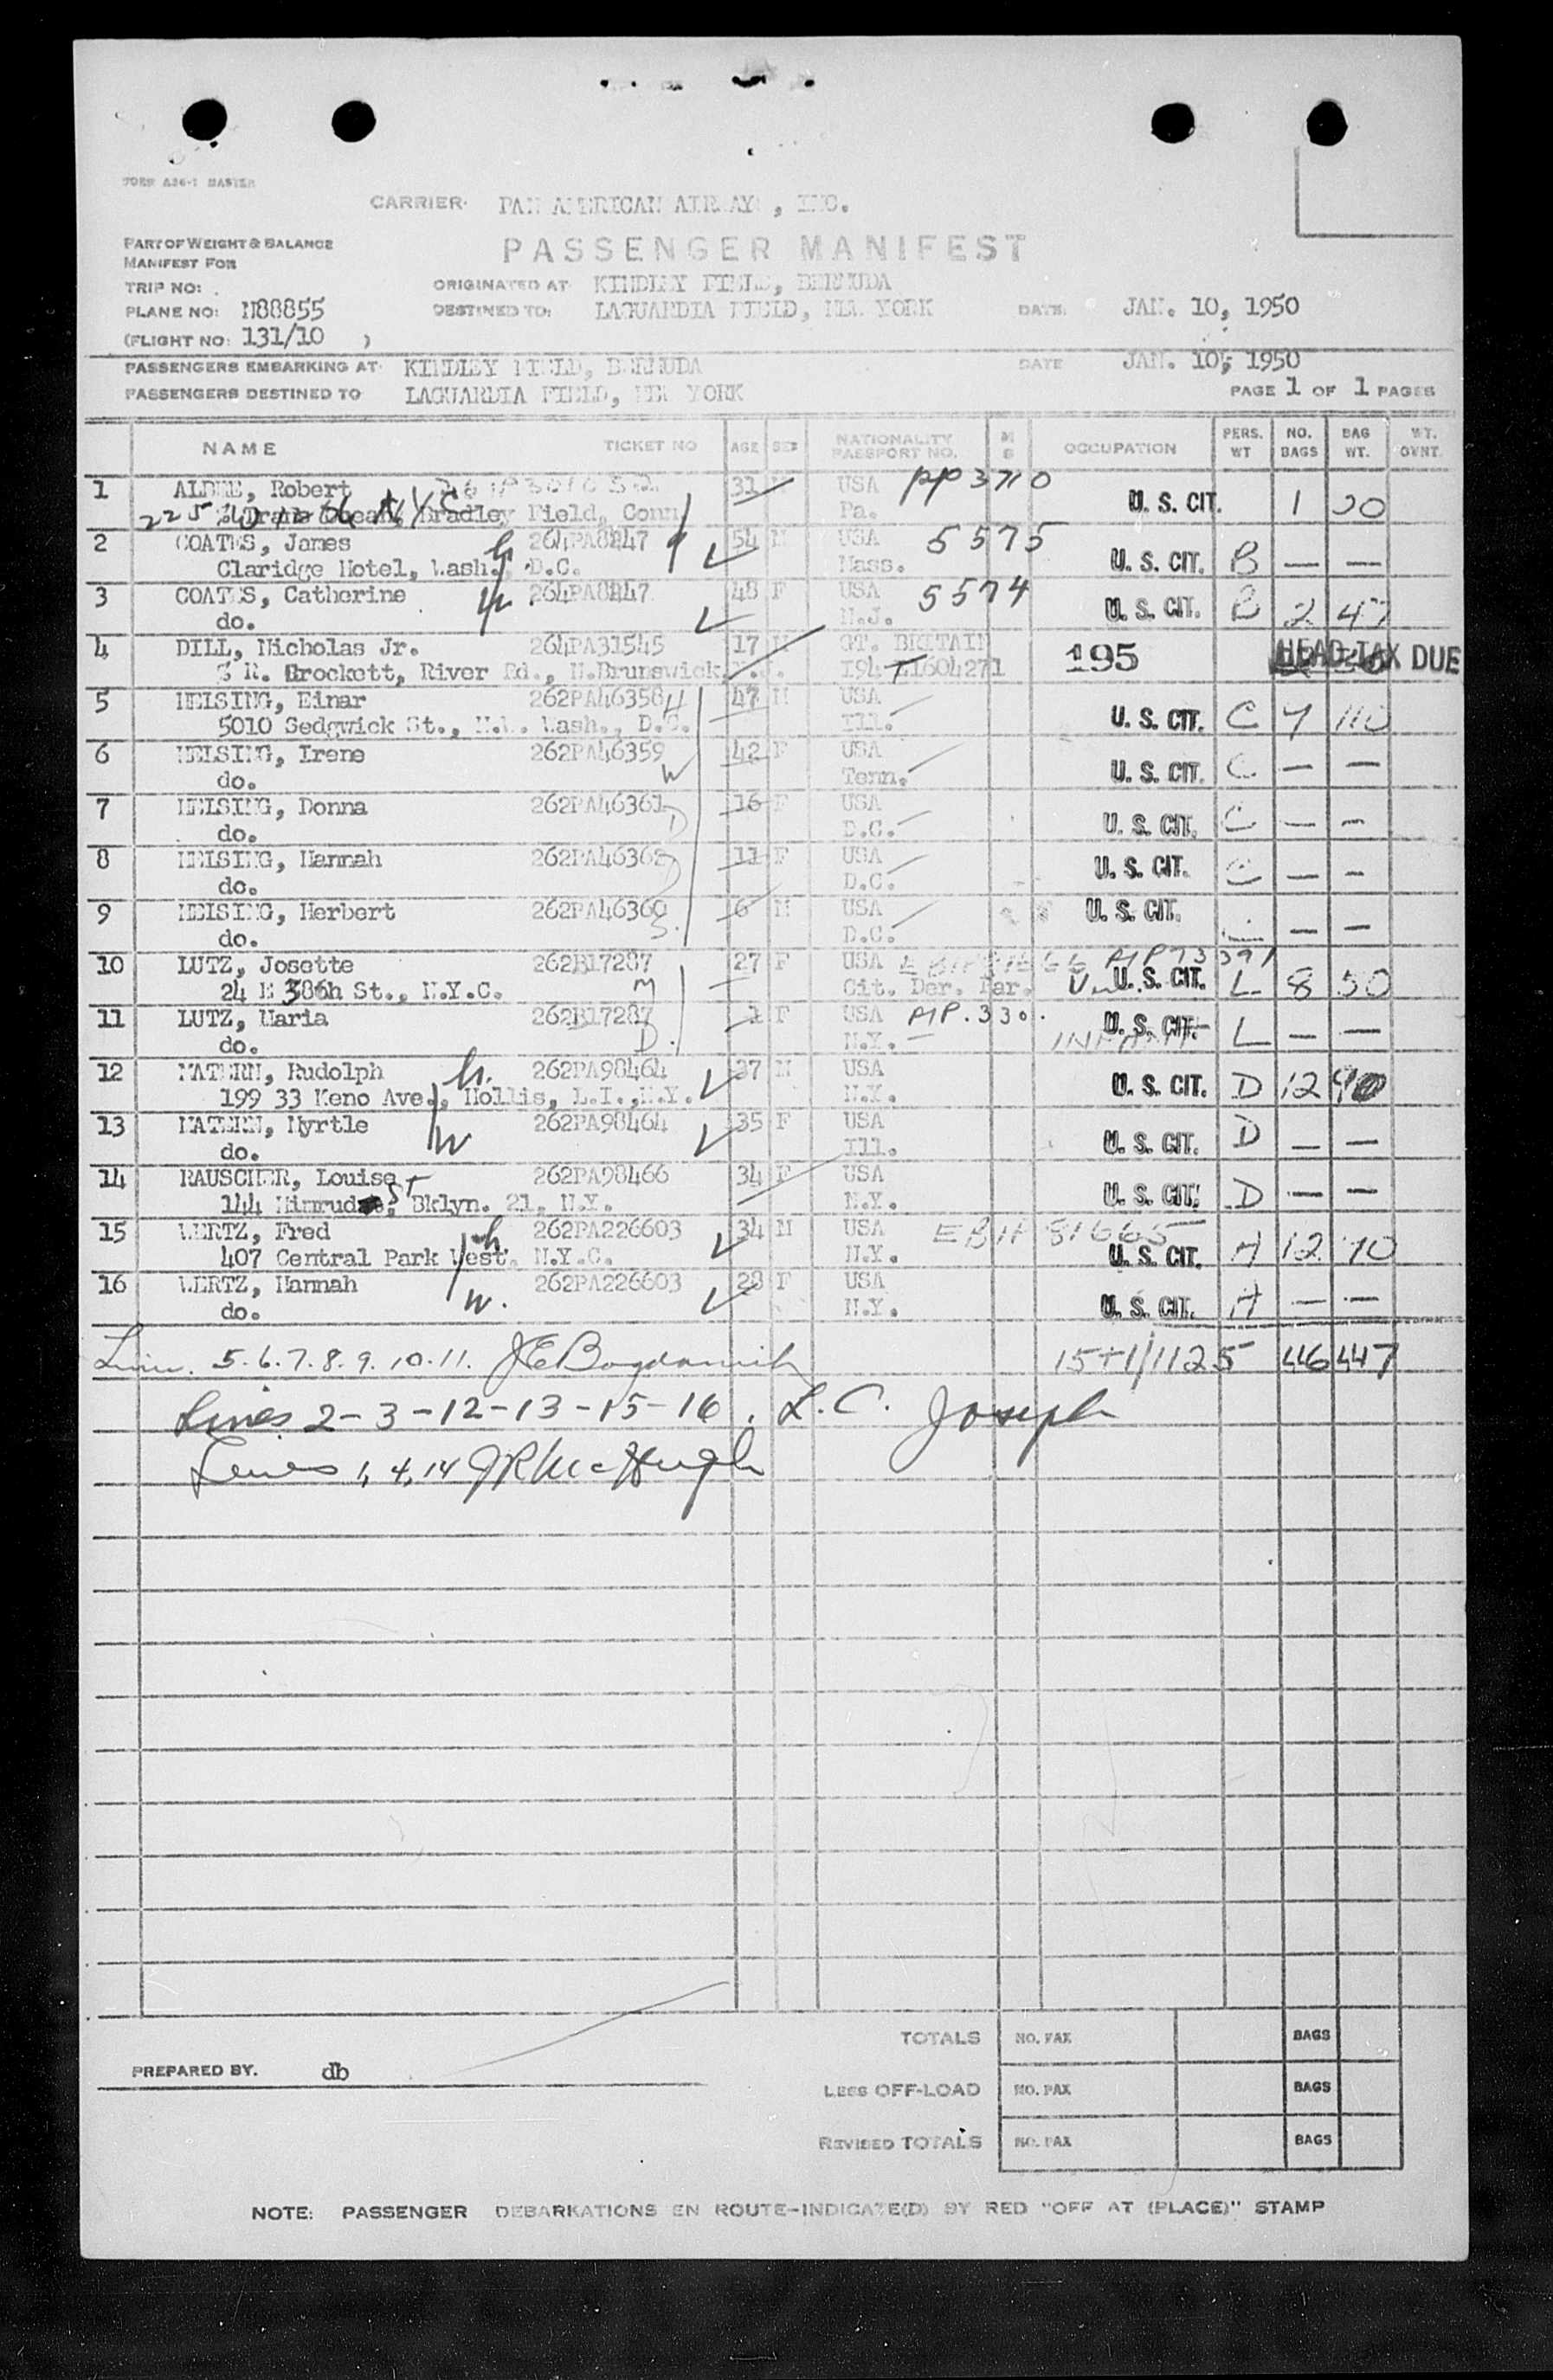 FORM A26-1 MASTER
CARRIER: PAN AMERICAN AIRWAYS, INC.
PASSENGER MANIFEST
PART OF WEIGHT & BALANCE
MANIFEST FOR
TRIP NO:
ORIGINATED AT KINDLEY FIELD, BERMUDA
PLANE NO: N88855 DESTINED TO: LAGUARDIA FIELD, NEW YORK DATE: JAN. 10, 1950
(FLIGHT NO: 131/10 )
PASSENGERS EMBARKING AT KINDLEY FIELD, BERMUDA DATE JAN. 10, 1950
PASSENGERS DESTINED TO LAGUARDIA FIELD, NEW YORK PAGE 1 OF 1 PAGES
NAME TICKET NO AGE SEX NATIONALITY PASSPORT NO. M S OCCUPATION PERS. WT NO. BAGS BAG WT. WT. OVNT.
1 Robert 31 USA PP 3710 U. S. CIT. 1 20
Bradley Field, Conn Pa.
2 COATES, James h 264PA8247 54 M USA 5575 U. S. CIT. B — —
Claridge Hotel, Wash., D.C. Mass.
3 COATES, Catherine w 264PA8247 48 F USA 5574 U. S. CIT. B 2 47
do. N.J.
4 DILL, Nicholas Jr. 264PA31545 17 GT. BRITAIN 195 HEAD TAX DUE
% R. Brockett, River Rd., N.Brunswick, N.J. I94
5 HEISING, Einar 262PA46358 H 47 M USA U. S. CIT. C 7 110
5010 Sedgwick St., N.W. Wash., D.C. Ill.
6 HEISING, Irene 262PA46359 W 42 F USA U. S. CIT. C — —
do. Tenn.
7 HEISING, Donna 262PA46361 D 16 F USA U. S. CIT. C — —
do. D.C.
8 HEISING, Hannah 262PA46362 D 11 F USA U. S. CIT. C — —
do. D.C.
9 HEISING, Herbert 262PA46360 S. 6 M USA U. S. CIT. — —
do. D.C.
10 LUTZ, Josette 262B17287 27 F USA U. S. CIT. L 8 50
24 E St., N.Y.C. M Cit. Der. Par.
11 LUTZ, Maria 262B17287 1 F USA U. S. CIT. L — —
do. D. N.Y. INFANT
12 MATERN, Rudolph h. 262PA98464 37 M USA U. S. CIT. D 12 90
199 33 Keno Ave., Hollis, L.I.,N.Y. N.Y.
13 MATERN, Myrtle 262PA98464 35 F USA U. S. CIT. D — —
do. W Ill.
14 RAUSCHER, Louise 262PA98466 34 F USA U. S. CIT. D — —
144 St Bklyn. 21, N.Y. N.Y.
15 WERTZ, Fred h 262PA226603 34 M USA U. S. CIT. A 12 70
407 Central Park West, N.Y.C. N.Y.
16 WERTZ, Hannah 262PA226603 28 F USA U. S. CIT. A — —
do. w. N.Y.
5.6.7.8.9.10.11. 15+1/1125 46 447
Lines 2-3-12-13-15-16. L. C. Joseph
Lines 1, 4, 14 JR McHugh
TOTALS NO. PAX BAGS
PREPARED BY. db
LESS OFF-LOAD NO. PAX BAGS
REVISED TOTALS NO. PAX BAGS
NOTE: PASSENGER DEBARKATIONS EN ROUTE-INDICATE(D) BY RED "OFF AT (PLACE)" STAMP